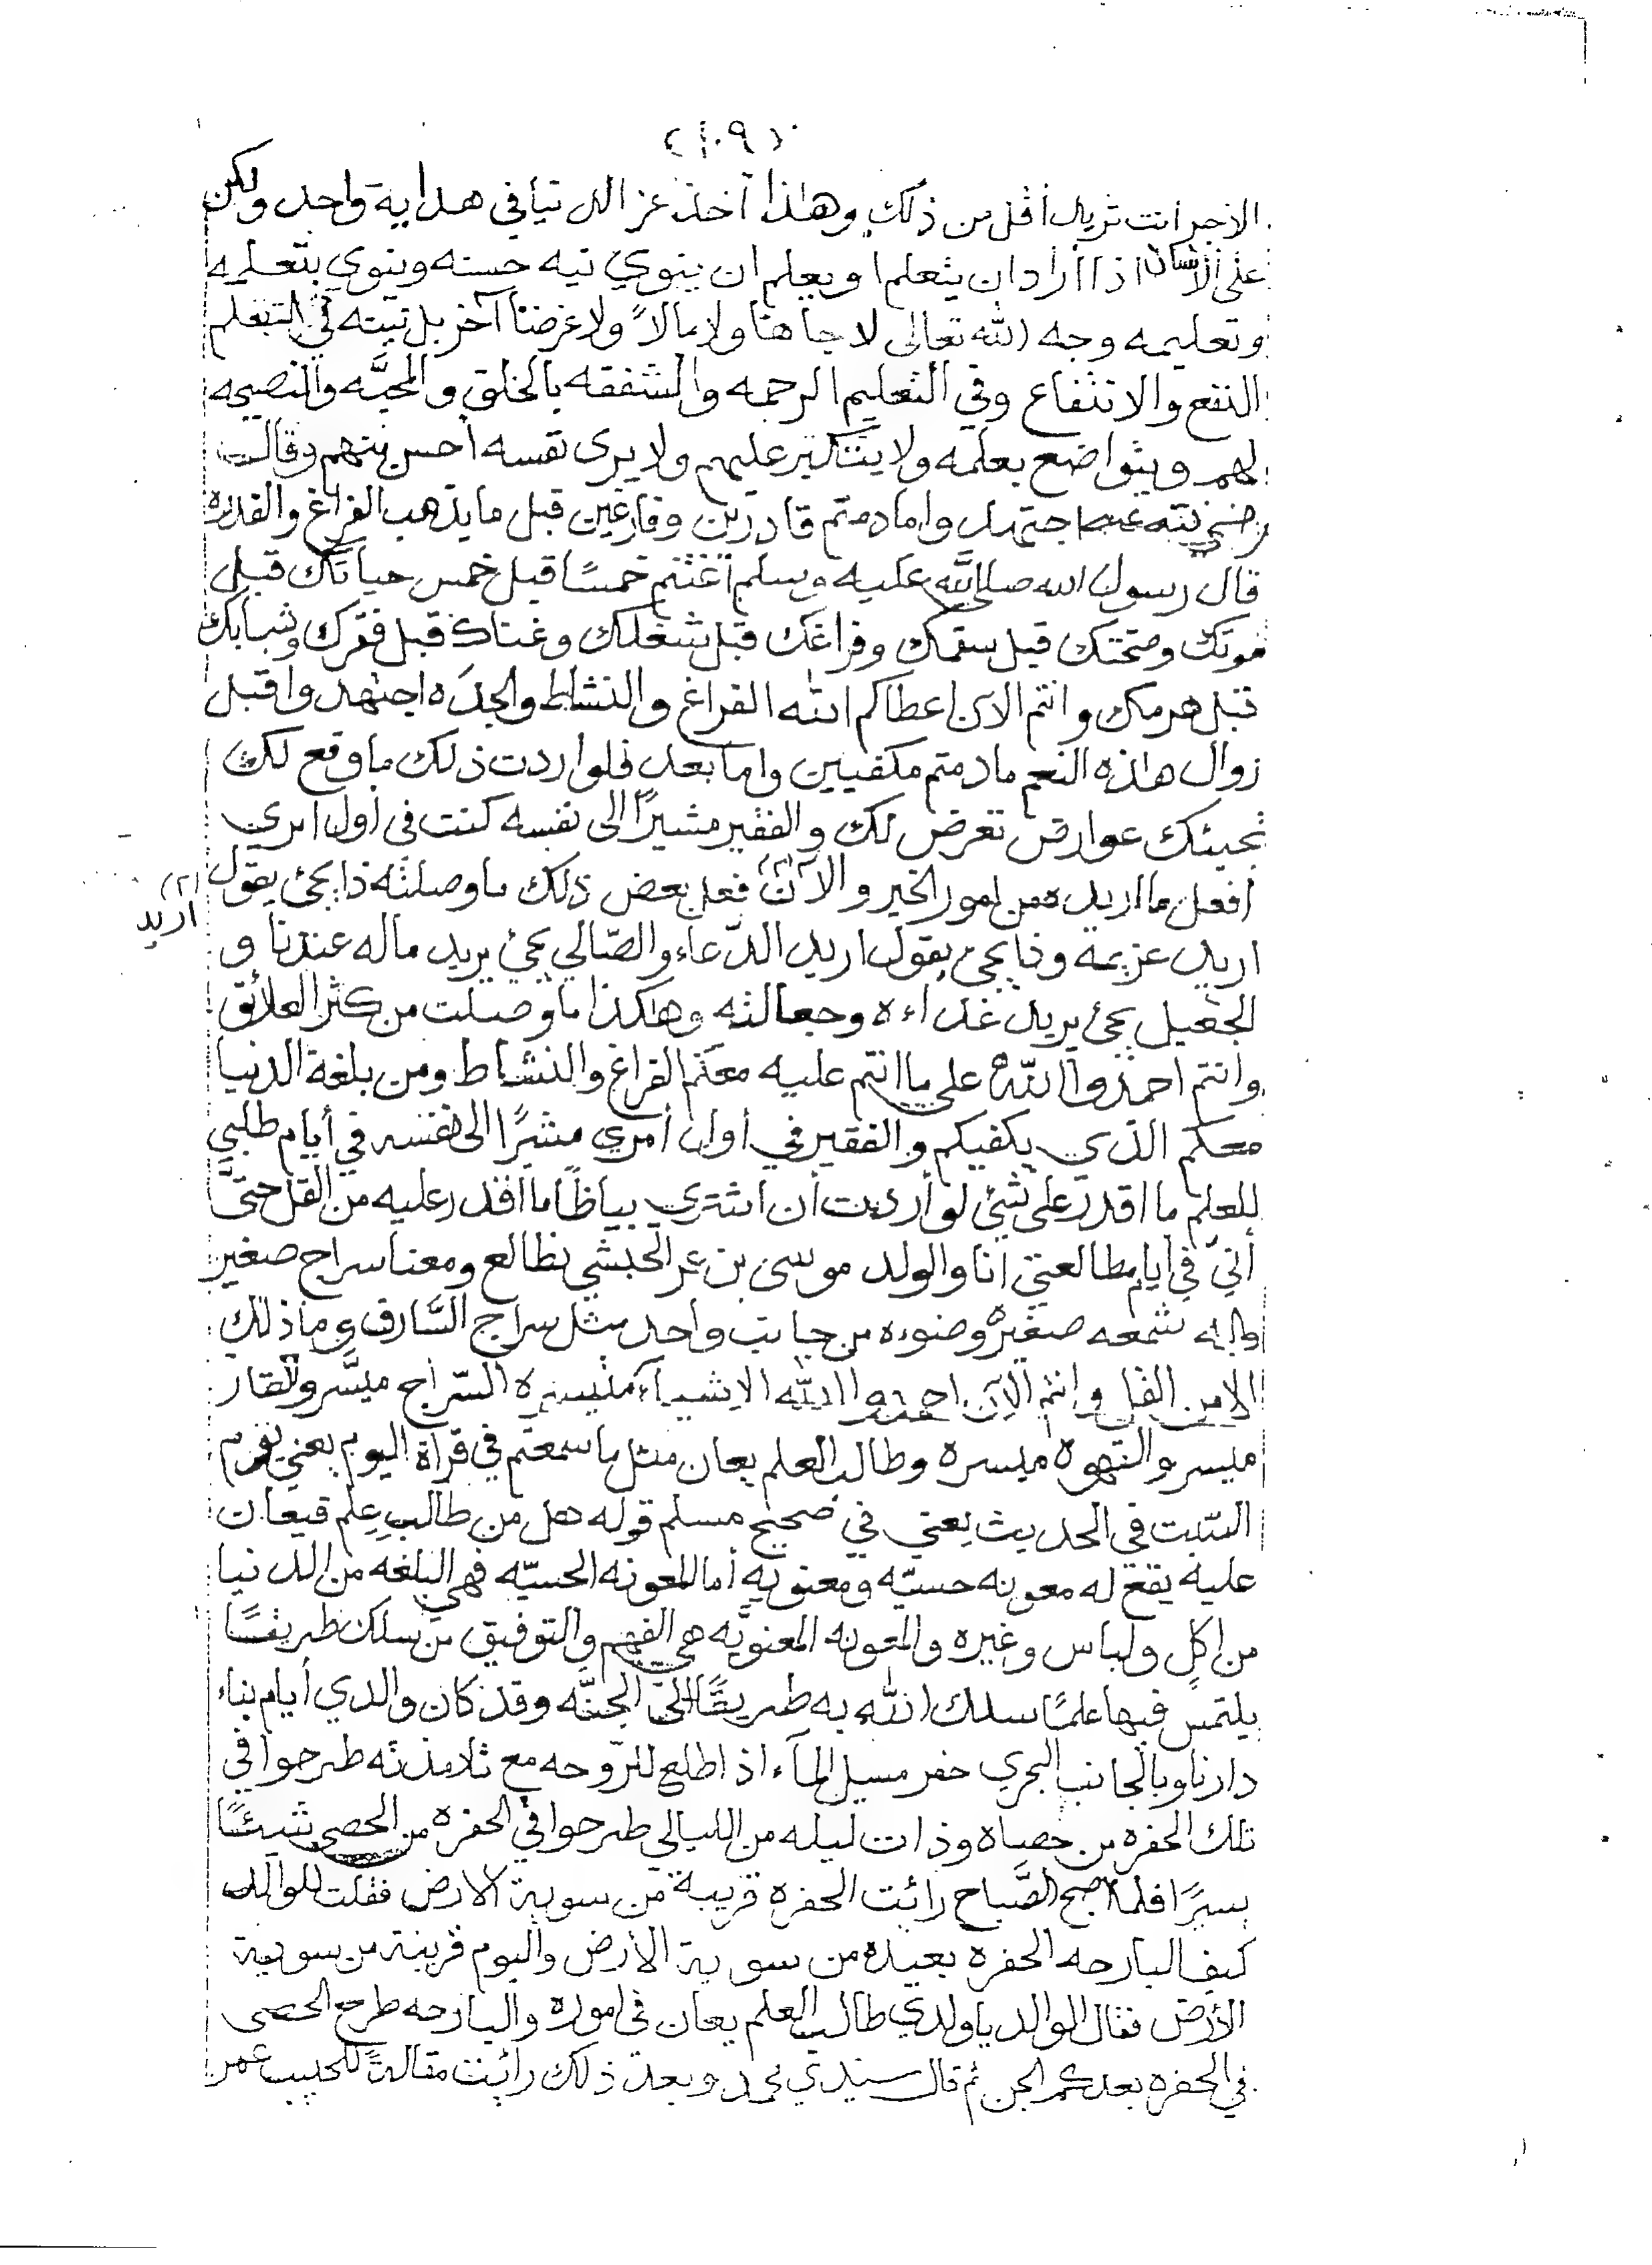 (١٠٩)
الاجر انت تريد أقل من ذلك وهاذا آخذ عز الدنيا في هداية واحد ولكن
على الانسان اذا أراد ان يتعلم او يعلم ان ينوي نيه حسنه وينوي بتعلمه
وتعليمه وجه الله تعالى لا جاها ولا مالاً ولا غرضا آخر بل نيته في التعلم
النفع والانتفاع وفي التعليم الرحمه والشفقه بالخلق والمحبَّه والنصيحه
لهم ويتواضع بعلمه ولا يتكبر عليهم ولا يرى نفسه أحسن منهم وقال
رضي الله عنه اجتهدوا مادمتم قادرين وفارغين قبل ما يذهب الفراغ والقدره
قال رسول الله صلى الله عليه وسلم اغتنم خمسًا قبل خمس حياتك قبل
موتك وصحتك قبل سقمك وفراغك قبل شغلك وغناك قبل فقرك وشبابك
قبل هرمك وانتم الآن اعطاكم الله الفراغ والنشاط والجدَه اجتهدوا قبل
زوال هاذه النعم مادمتم مكفيين واما بعد فلو اردت ذلك ما وقع لك
تجيئك عوارض تعرض لك والفقير مشيرًا الى نفسه كنت في أول امري
أفعل ما اريده من امور الخير والآن (٢) فعل بعض ذلك ما وصلته ذا يجئ يقول
(٢) اريد
اريد عزيمه وذا يجئ يقول اريد الدّعاء والصّالي يجئ يريد ماله عندنا و
الجعيل يجئ يريد غداءه وجعالته وهاكذا ما وصلت من كثر العلائق
وانتم احمدوا الله على ما انتم عليه معكم الفراغ والنشاط ومن بلغة الدنيا
معكم الذي يكفيكم والفقير في أول أمري مشيرًا الى نفسه في أيام طلبي
للعلم ما اقدر على شئ لو أردت أن اشتري بياظًا ما أقدر عليه من القل حتىَّ
أنيّ في أيام مطالعتي انا والولد موسى بن عمر الحبشي نطالع ومعنا سراج صغير
وله شمعه صغيره وضوءه من جانب واحد مثل سراج السَّارق وما ذلك
الا من القل وانتم الآن احمدوا الله الاشياء متيسره السّراج ميسَّر والقار
ميسر والقهوه ميسره وطالب العلم يعان مثل ما سمعتم في قرآة اليوم يعني يوم
السّبت في الحديث يعني في صحيح مسلم قوله هل من طالب عِلم فيعان
عليه يقع له معونه حسيّه ومعنويه أما المعونه الحسيّه فهي البلغه من الدنيا
من اكلٍ ولباس وغيره والمعونه المعنويَّه هي الفهم والتوفيق من سلك طريقًا
يلتمس فيها علمًا سلك الله به طريقًا الى الجنَّه وقد كان والدي أيام بناء
دارنا وبالجانب البحري حفر مسيل المآء اذا طلع للتروحه مع تلامذته طرحوا في
تلك الحفره من حصاه وذات ليله من الليالي طرحوا في الحفره من الحصى شيئًا
يسيرًا فلما اصبح الصَّباح رائت الحفره قريبة من سوية الارض فقلت للوالد
كيف البارحه الحفره بعيده من سوية الأرض واليوم قريبة من سوية
الأرض فقال الوالد يا ولدي طالب العلم يعان في اموره والبارحه طرح الحصى
في الحفره بعدكم الجن ثم قال سيدي محمد وبعد ذلك رائت مقالةً للحبيب عمر